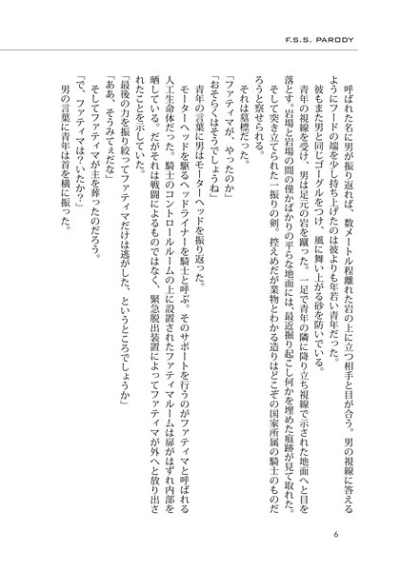 F.S.S. PARODY
呼ばれた名に男が振り返れば、数メートル程離れた岩の上に立つ相手と目が合う。男の視線に答える
ようにフードの端を少し持ち上げたのは彼よりも年若い青年だった。
彼もまた男と同じゴーグルをつけ、風に舞い上がる砂を防いでいる。
青年の視線を受け、男は足元の岩を蹴った。一足で青年の隣に降り立ち視線で示された地面へと目を
落とす。岩場と岩場の間の僅かばかりの平らな地面には、最近掘り起こし何かを埋めた痕跡が見て取れた。
そして突き立てられた一振りの剣。控えめだが業物とわかる造りはどこぞの国家所属の騎士のものだ
ろうと察せられる。
それは墓標だった。
「ファティマが、やったのか」
「おそらくはそうでしょうね」
青年の言葉に男はモーターヘッドを振り返った。
モーターヘッドを駆るヘッドライナーを騎士と呼ぶ。そのサポートを行うのがファティマと呼ばれる
人工生命体だった。騎士のコントロールルームの上に設置されたファティマルームは扉がはずれ内部を
晒している。だがそれは戦闘によるものではなく、緊急脱出装置によってファティマが外へと放り出さ
れたことを示していた。
「最後の力を振り絞ってファティマだけは逃がした、というところでしょうか」
「ああ、そうみてぇだな」
そしてファティマが主を葬ったのだろう。
「で、ファティマは？いたか？」
男の言葉に青年は首を横に振った。
6